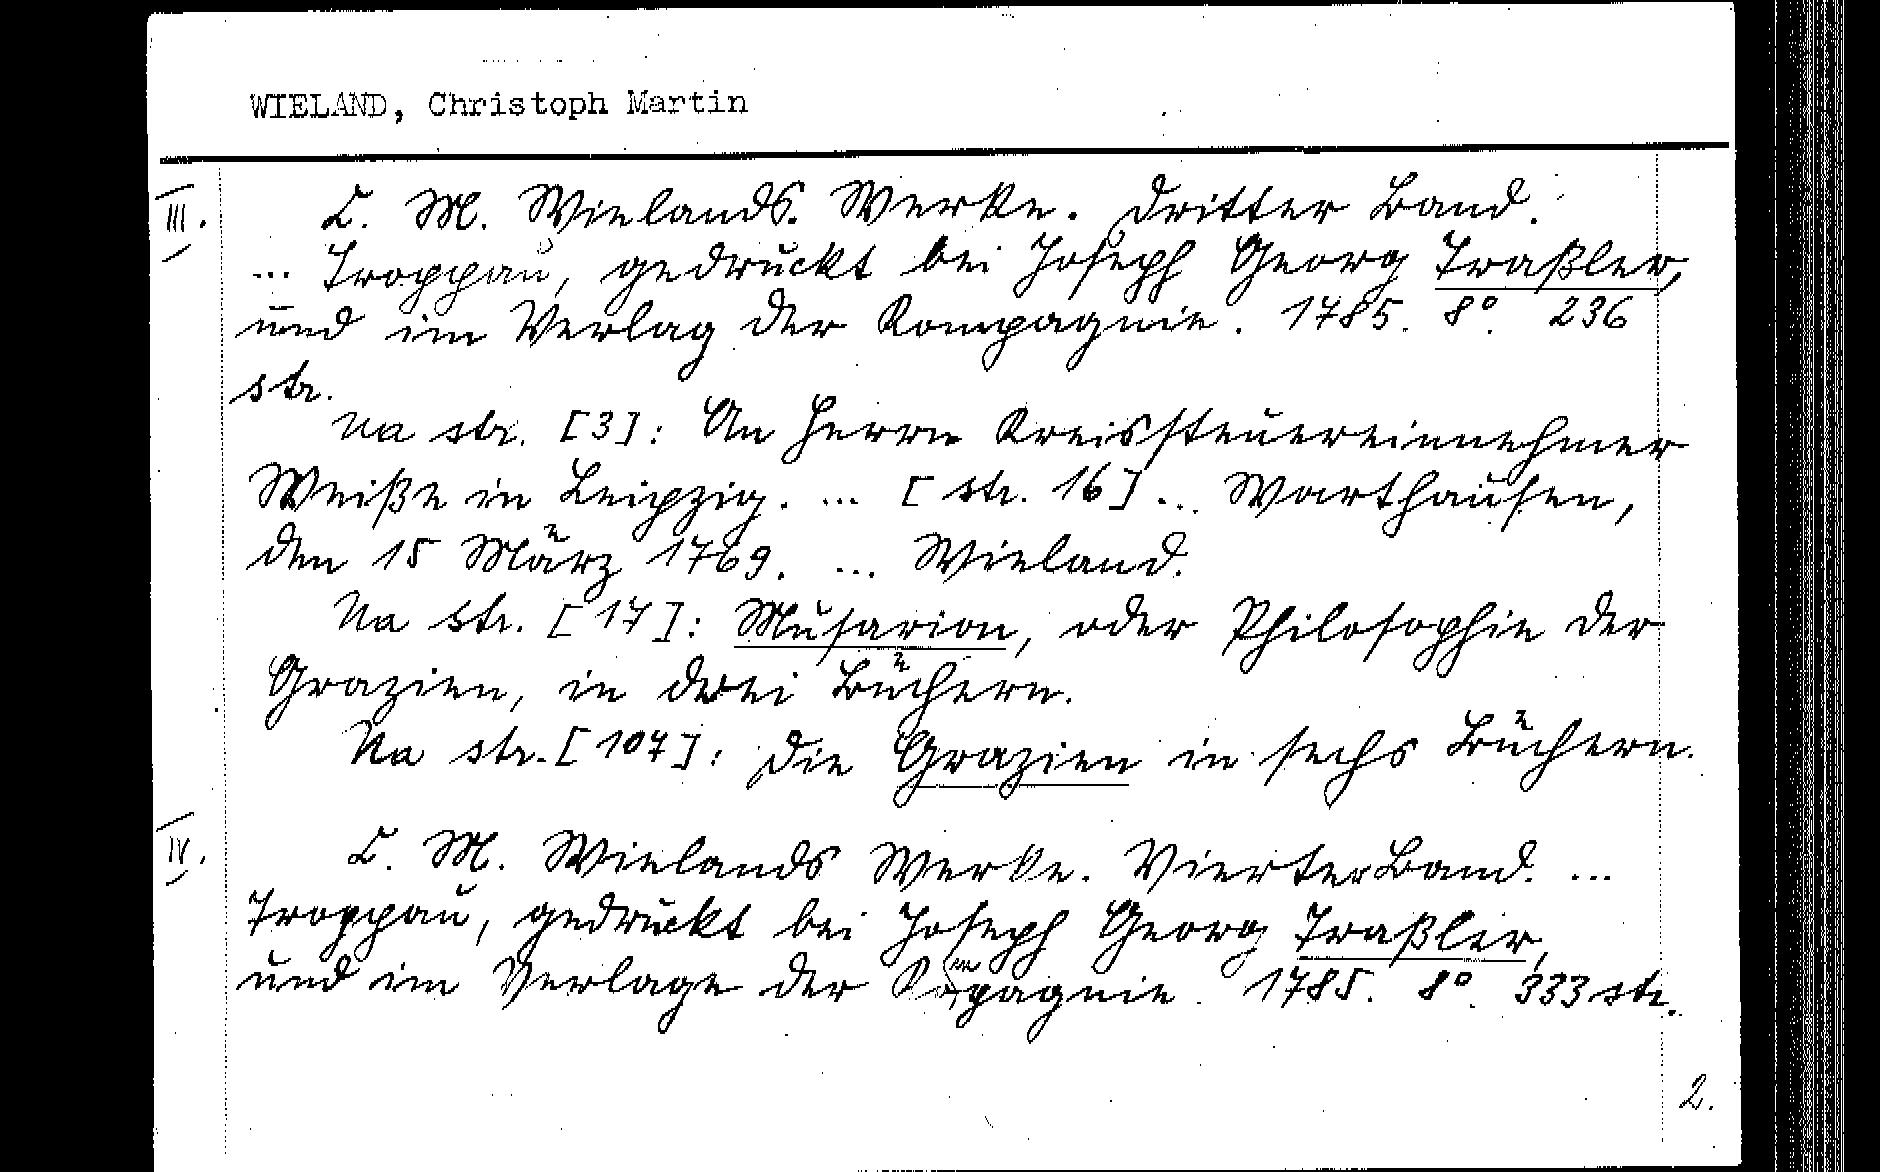 WIELAND, Christoph Martin
III. C. M. Wielands Werke. Dritter Band.
... Troppau, gedruckt bei Joseph Georg Traßler,
und im Verlag der Kompagnie. 1785. 8°. 236
str.
Na str. [3]: An Herrn Kreissteuereinnehmer
Weiße in Leipzig. ... [str. 16] ... Warthausen,
den 15 März 1769. ... Wieland.
Na str. [17]: Musarion, oder Philosophie der
Grazien, in drei Büchern.
Na str. [107]: Die Grazien in sechs Büchern.
IV. C. M. Wielands Werke. Vierter Band. ...
Troppau, gedruckt bei Joseph Georg Traßler,
und im Verlage der Kompagnie. 1785. 8°. 333 str.
2.